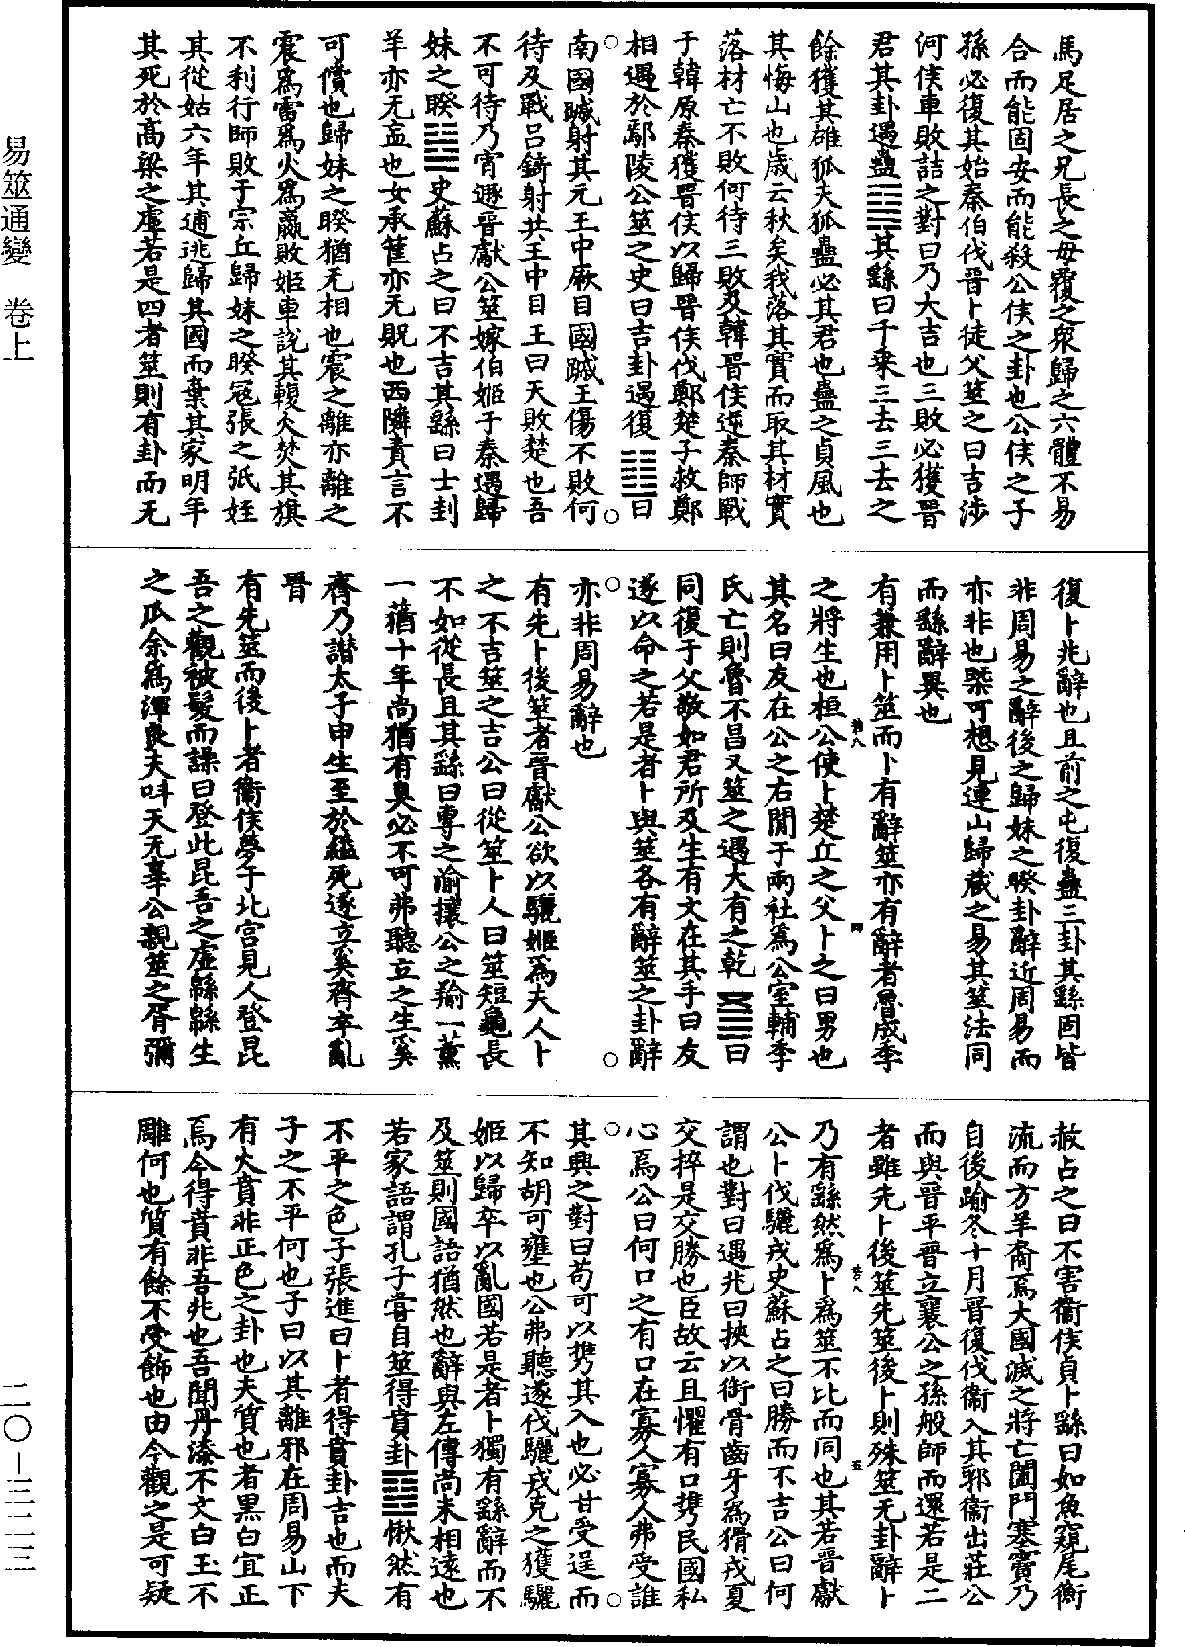 易筮通變 卷上
馬足居之兄長之毋覆之衆歸之六體不易
合而能固安而能殺公侯之卦也公侯之子
孫必復其始秦伯伐晉卜徒父筮之曰吉涉
河侯車敗詰之對曰乃大吉也三敗必獲晉
君其卦遇蠱䷑其繇曰千乘三去三去之
餘獲其雄狐夫狐蠱必其君也蠱之貞風也
其悔山也歲云秋矣我落其實而取其材實
落材亡不敗何待三敗及韓晉侯逆秦師戰
于韓原秦獲晉侯以歸晉侯伐鄭楚子救鄭
相遇於鄢陵公筮之史曰吉卦遇復䷗曰
南國䠞射其元王中厥目國䠞王傷不敗何
待及戰呂錡射共王中目王曰天敗楚也吾
不可待乃宵遯晉獻公筮嫁伯姬于秦遇歸
妹之睽䷥史蘇占之曰不吉其繇曰士刲
羊亦无衁也女承筐亦无貺也西隣責言不
可償也歸妹之睽猶无相也震之離亦離之
震爲雷爲火爲嬴敗姬車説其輹火焚其旗
不利行師敗于宗丘歸妹之睽寇張之弧姪
其從姑六年其逋逃歸其國而棄其家明年
其死於高梁之虛若是四者筮則有卦而无
復卜兆辭也且前之屯復蠱三卦其繇固皆
非周易之辭後之歸妹之睽卦辭近周易而
亦非也槩可想見連山歸藏之易其筮法同
而繇辭異也
有兼用卜筮而卜有辭筮亦有辭者魯成季
之將生也桓公使卜楚丘之父卜之曰男也
其名曰友在公之右閒于兩社爲公室輔季
氏亡則魯不昌又筮之遇大有之乾䷀曰
同復于父敬如君所及生有文在其手曰友
遂以命之若是者卜與筮各有辭筮之卦辭
亦非周易辭也
有先卜後筮者晉獻公欲以驪姬爲夫人卜
之不吉筮之吉公曰從筮卜人曰筮短龜長
不如從長且其繇曰專之渝攘公之羭一薰
一蕕十年尚猶有臭必不可弗聽立之生奚
齊乃譖太子申生至於縊死遂立奚齊卒亂
晉
有先筮而後卜者衞侯夢于北宮見人登昆
吾之觀被髮而譟曰登此昆吾之虛緜緜生
之瓜余爲渾良夫叫天无辜公親筮之胥彌
赦占之曰不害衞侯貞卜繇曰如魚竀尾衡
流而方羊裔焉大國滅之將亡闔門塞竇乃
自後踰冬十月晉復伐衞入其郛衞出莊公
而與晉平晉立襄公之孫般師而還若是二
者雖先卜後筮先筮後卜則殊筮无卦辭卜
乃有繇然爲卜爲筮不比而同也其若晉獻
公卜伐驪戎史蘇占之曰勝而不吉公曰何
謂也對曰遇兆曰挾以銜骨齒牙爲猾戎夏
交捽是交勝也臣故云且懼有口㩗民國私
心焉公曰何口之有口在寡人寡人弗受誰
其興之對曰苟可以㩗其入也必甘受逞而
不知胡可壅也公弗聽遂伐驪戎克之獲驪
姬以歸卒以亂國若是者卜獨有繇辭而不
及筮則國語猶然也辭與左傳尚未相遠也
若家語謂孔子嘗自筮得賁卦䷕愀然有
不平之色子張進曰卜者得賁卦吉也而夫
子之不平何也子曰以其離邪在周易山下
有火賁非正色之卦也夫質也者黑白宜正
焉今得賁非吾兆也吾聞丹漆不文白玉不
雕何也質有餘不受飾也由今觀之是可疑
二〇—三二三